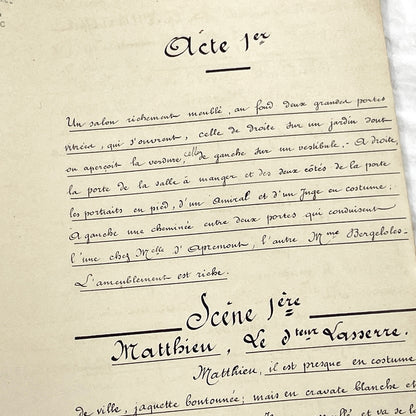 Acte 1er
Un salon richement meublé, au fond deux grandes portes
vitrées, qui s'ouvrent, celle de droite sur un jardin dont
on aperçoit la verdure, celle de gauche sur un vestibule. A droite,
la porte de la salle à manger et des deux côtés de la porte
les portraits en pied, d'un Amiral et d'un Juge en costume.
A gauche une cheminée entre deux portes qui conduisent
l'une chez Melle d'Apremont, l'autre Mme Bergeloles.
L'ameublement est riche.
Scène 1ère
Matthieu, Le dteur Lasserre.
Matthieu, il est presque en costume
de ville, jaquette boutonnée; mais en cravate blanche et
et va se